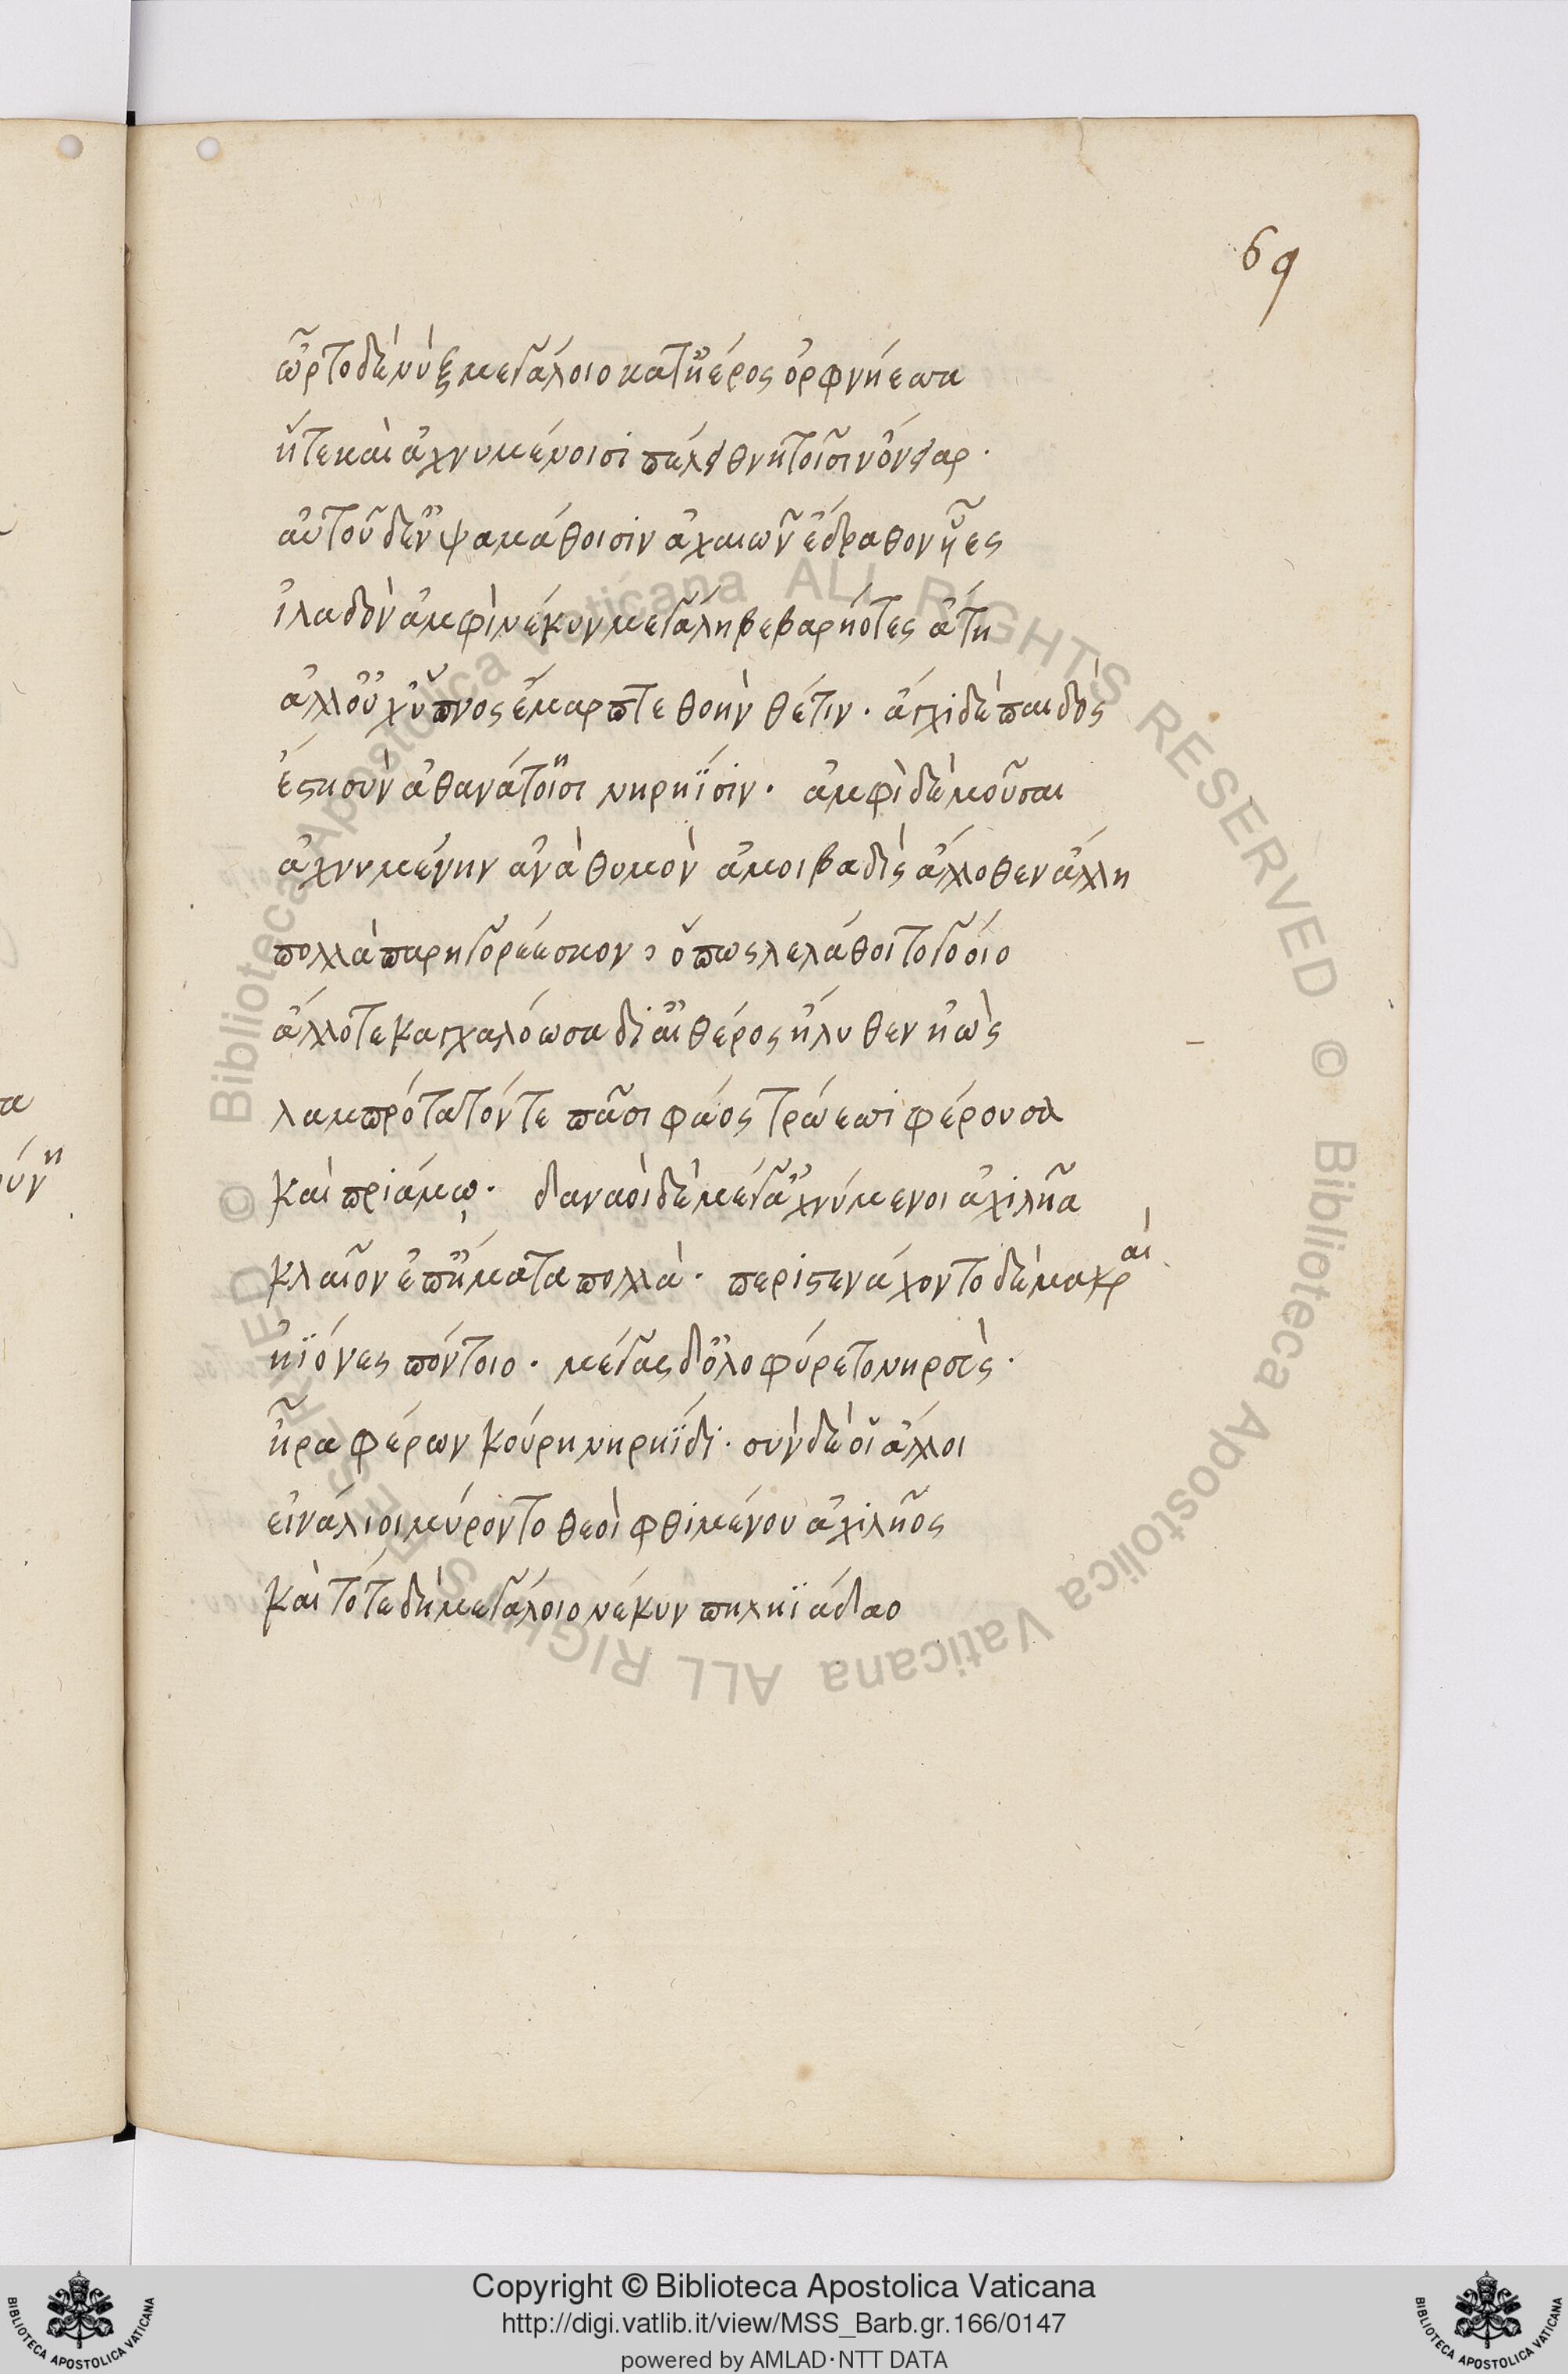 69
ὦρτο δὲ νὺξ μεγάλοιο κατ' ἠέρος ὀρφνήεσσα
ἥτε καὶ ἀχνυμένοισι πέλει θνητοῖσιν ὄνειαρ·
αὐτοῦ δ' ἐν ψαμάθοισιν ἀχαιῶν ἔδραθον υἷες
ἰλαδὸν ἀμφὶ νέκυν μεγάλη βεβαρηότες ἄτη
ἀλλ' οὐχ ὕπνος ἔμαρπτε θοὴν θέτιν· ἄγχι δὲ παιδὸς
ἧστο σὺν ἀθανάτοισι νηρηΐσιν· ἀμφὶ δὲ μοῦσαι
ἀχνυμένην ἀνὰ θυμὸν ἀμοιβαδὶς ἄλλοθεν ἄλλη
πολλὰ παρηγορέεσκον, ὅπως λελάθοιτο γόοιο
ἀλλ' ὅτε καγχαλόωσα δι' αἰθέρος ἤλυθεν ἠὼς
λαμπρότατόν τε πᾶσι φάος τρώεσσι φέρουσα
καὶ πριάμῳ· δαναοὶ δὲ μέγ' ἀχνύμενοι ἀχιλῆα
κλαῖον ἐπ' ἤματα πολλὰ· περιστενάχοντο δὲ μακραὶ
ἠϊόνες πόντοιο· μέγας δ' ὀλοφύρετο νηρεὺς·
ἦρα φέρων κούρη νηρηΐδι· σὺν δέ οἱ ἄλλοι
εἰνάλιοι μύροντο θεοὶ φθιμένου ἀχιλῆος
καὶ τότε δὴ μεγάλοιο νέκυν πηληϊάδαο
© Biblioteca Apostolica Vaticana ALL RIGHTS RESERVED © Biblioteca Apostolica Vaticana ALL RIGHTS RESERVED
Copyright © Biblioteca Apostolica Vaticana
http://digi.vatlib.it/view/MSS_Barb.gr.166/0147
powered by AMLAD·NTT DATA
BIBLIOTECA APOSTOLICA VATICANA
BIBLIOTECA APOSTOLICA VATICANA